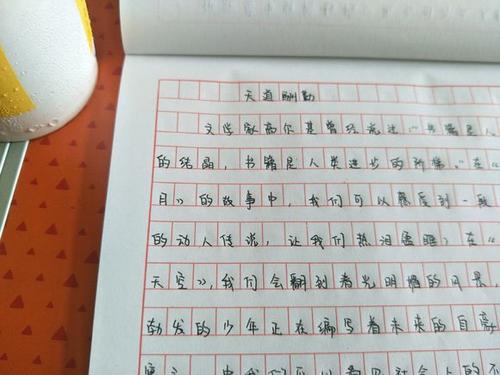 天道酬勤
文学家高尔基曾经说过“书籍是人
的结晶，书籍是人类进步的阶梯。”在《
月》的故事中，我们可以感受到一段
的动人传说，让我们热泪盈眶；在《
天空》，我们会翻到春光明媚的风景，
勃发的少年正在编写着未来的自
我们可以看见社会人的不